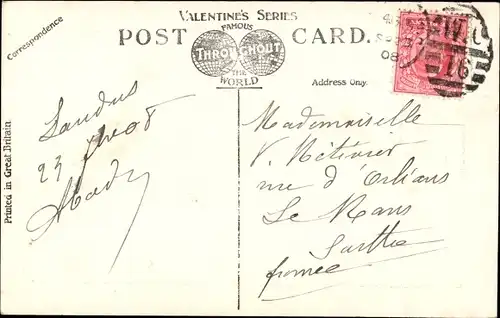 VALENTINE'S SERIES
FAMOUS
THROUGHOUT
THE
WORLD
POST CARD.
Correspondence
Address Only.
Printed in Great Britain.
Londres
23 08
Mademoiselle
V. Métivier
rue d'Orléans
Le Mans
Sarthe
france
08
W.C
16